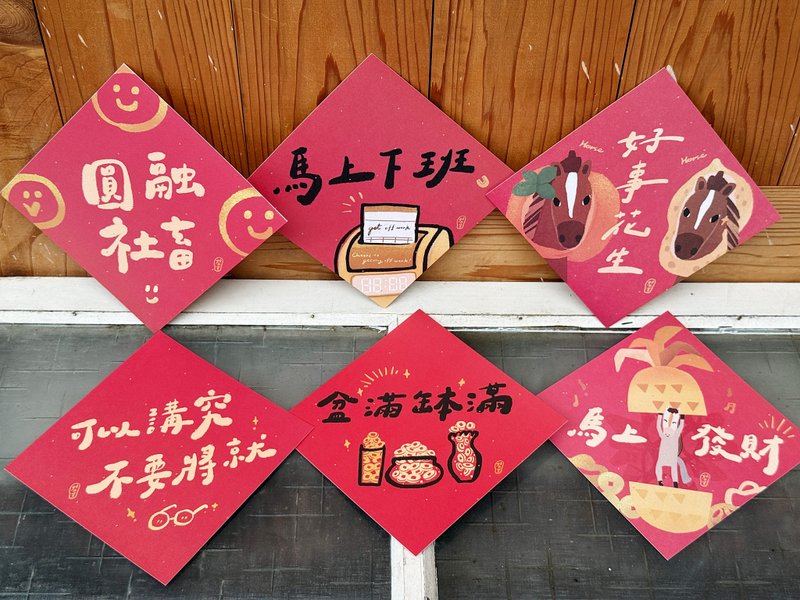 圓融
社畜
馬上下班
get off work
Cheers to
getting off work!
好事花生
Horse
Horse
可以講究
不要將就
盆滿缽滿
馬上發財